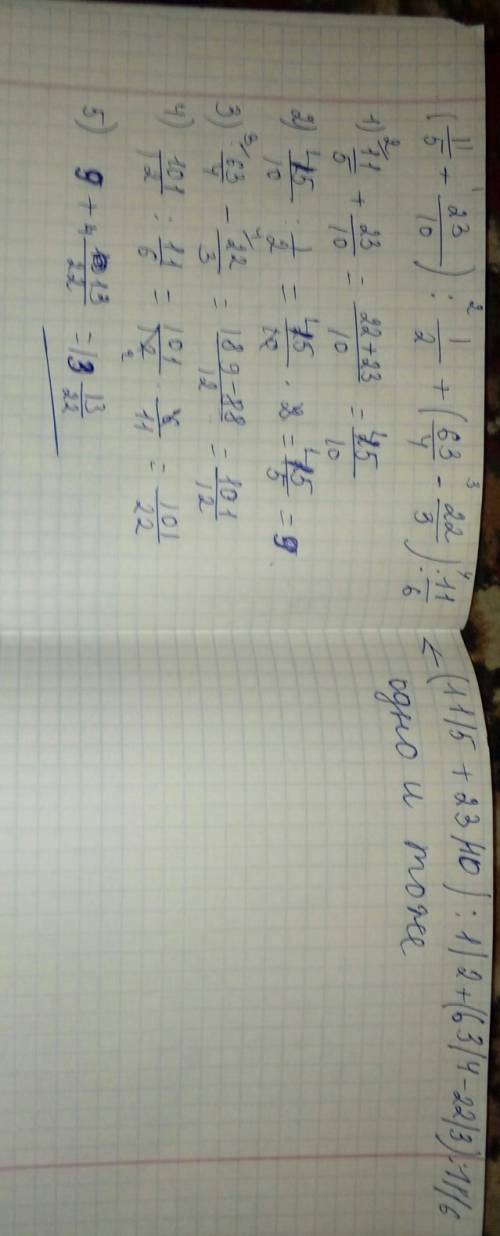 (11/5 + 23/10) : 1/2 + (63/4 - 22/3) : 11/6
1) 11/5 + 23/10 = 22+23/10 = 45/10
2) 45/10 : 1/2 = 45/10 · 2 = 45/5 = 9
3) 63/4 - 22/3 = 189-88/12 = 101/12
4) 101/12 : 11/6 = 101/12 · 6/11 = 101/22
5) 9 + 4 13/22 = 13 13/22
← (11/5 + 23/10) : 1/2 + (63/4 - 22/3) : 11/6
одно и тоже